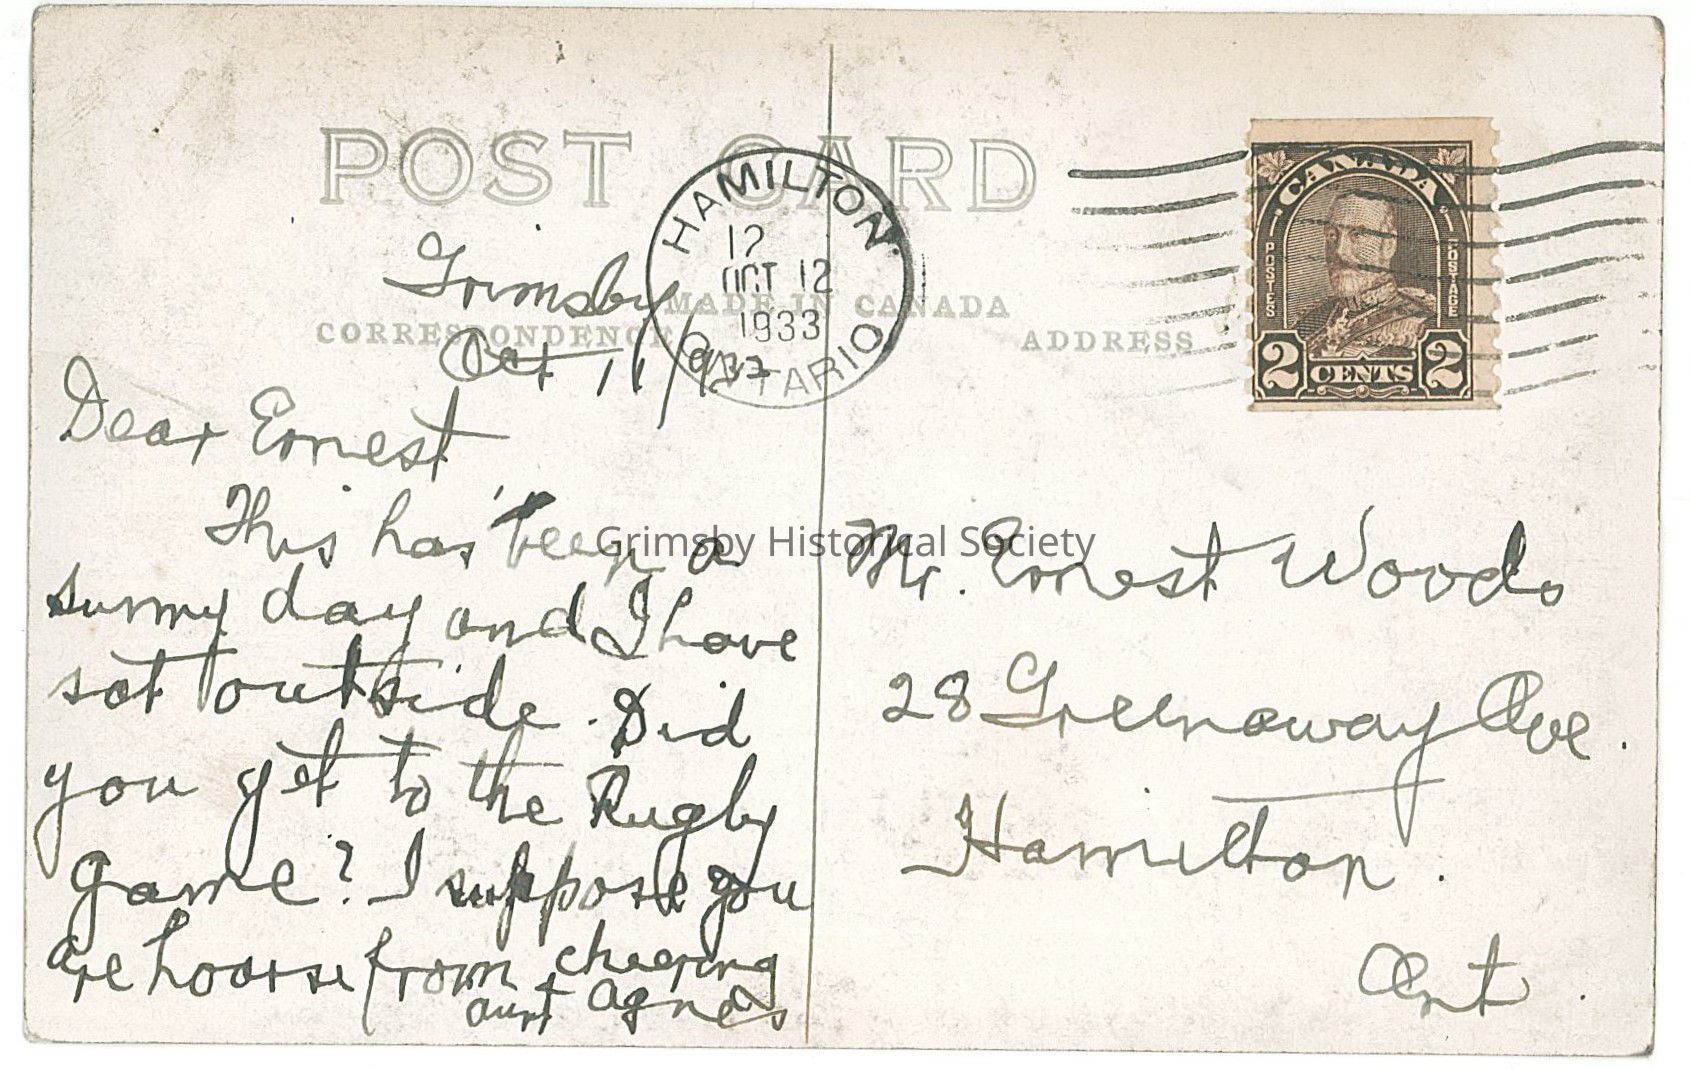 POST CARD
MADE IN CANADA
CORRESPONDENCE
ADDRESS
HAMILTON
12
OCT 12
1933
ONTARIO
CANADA
POSTES
POSTAGE
2 CENTS 2
Grimsby
Oct 11/933
Dear Ernest
This has been a
sunny day and I have
sat outside. Did
you get to the Rugby
game? I suppose you
are hoarse from cheering
aunt Agnes
Grimsby Historical Society
Mr. Ernest Woods
28 Greenaway Ave.
Hamilton.
Ont.